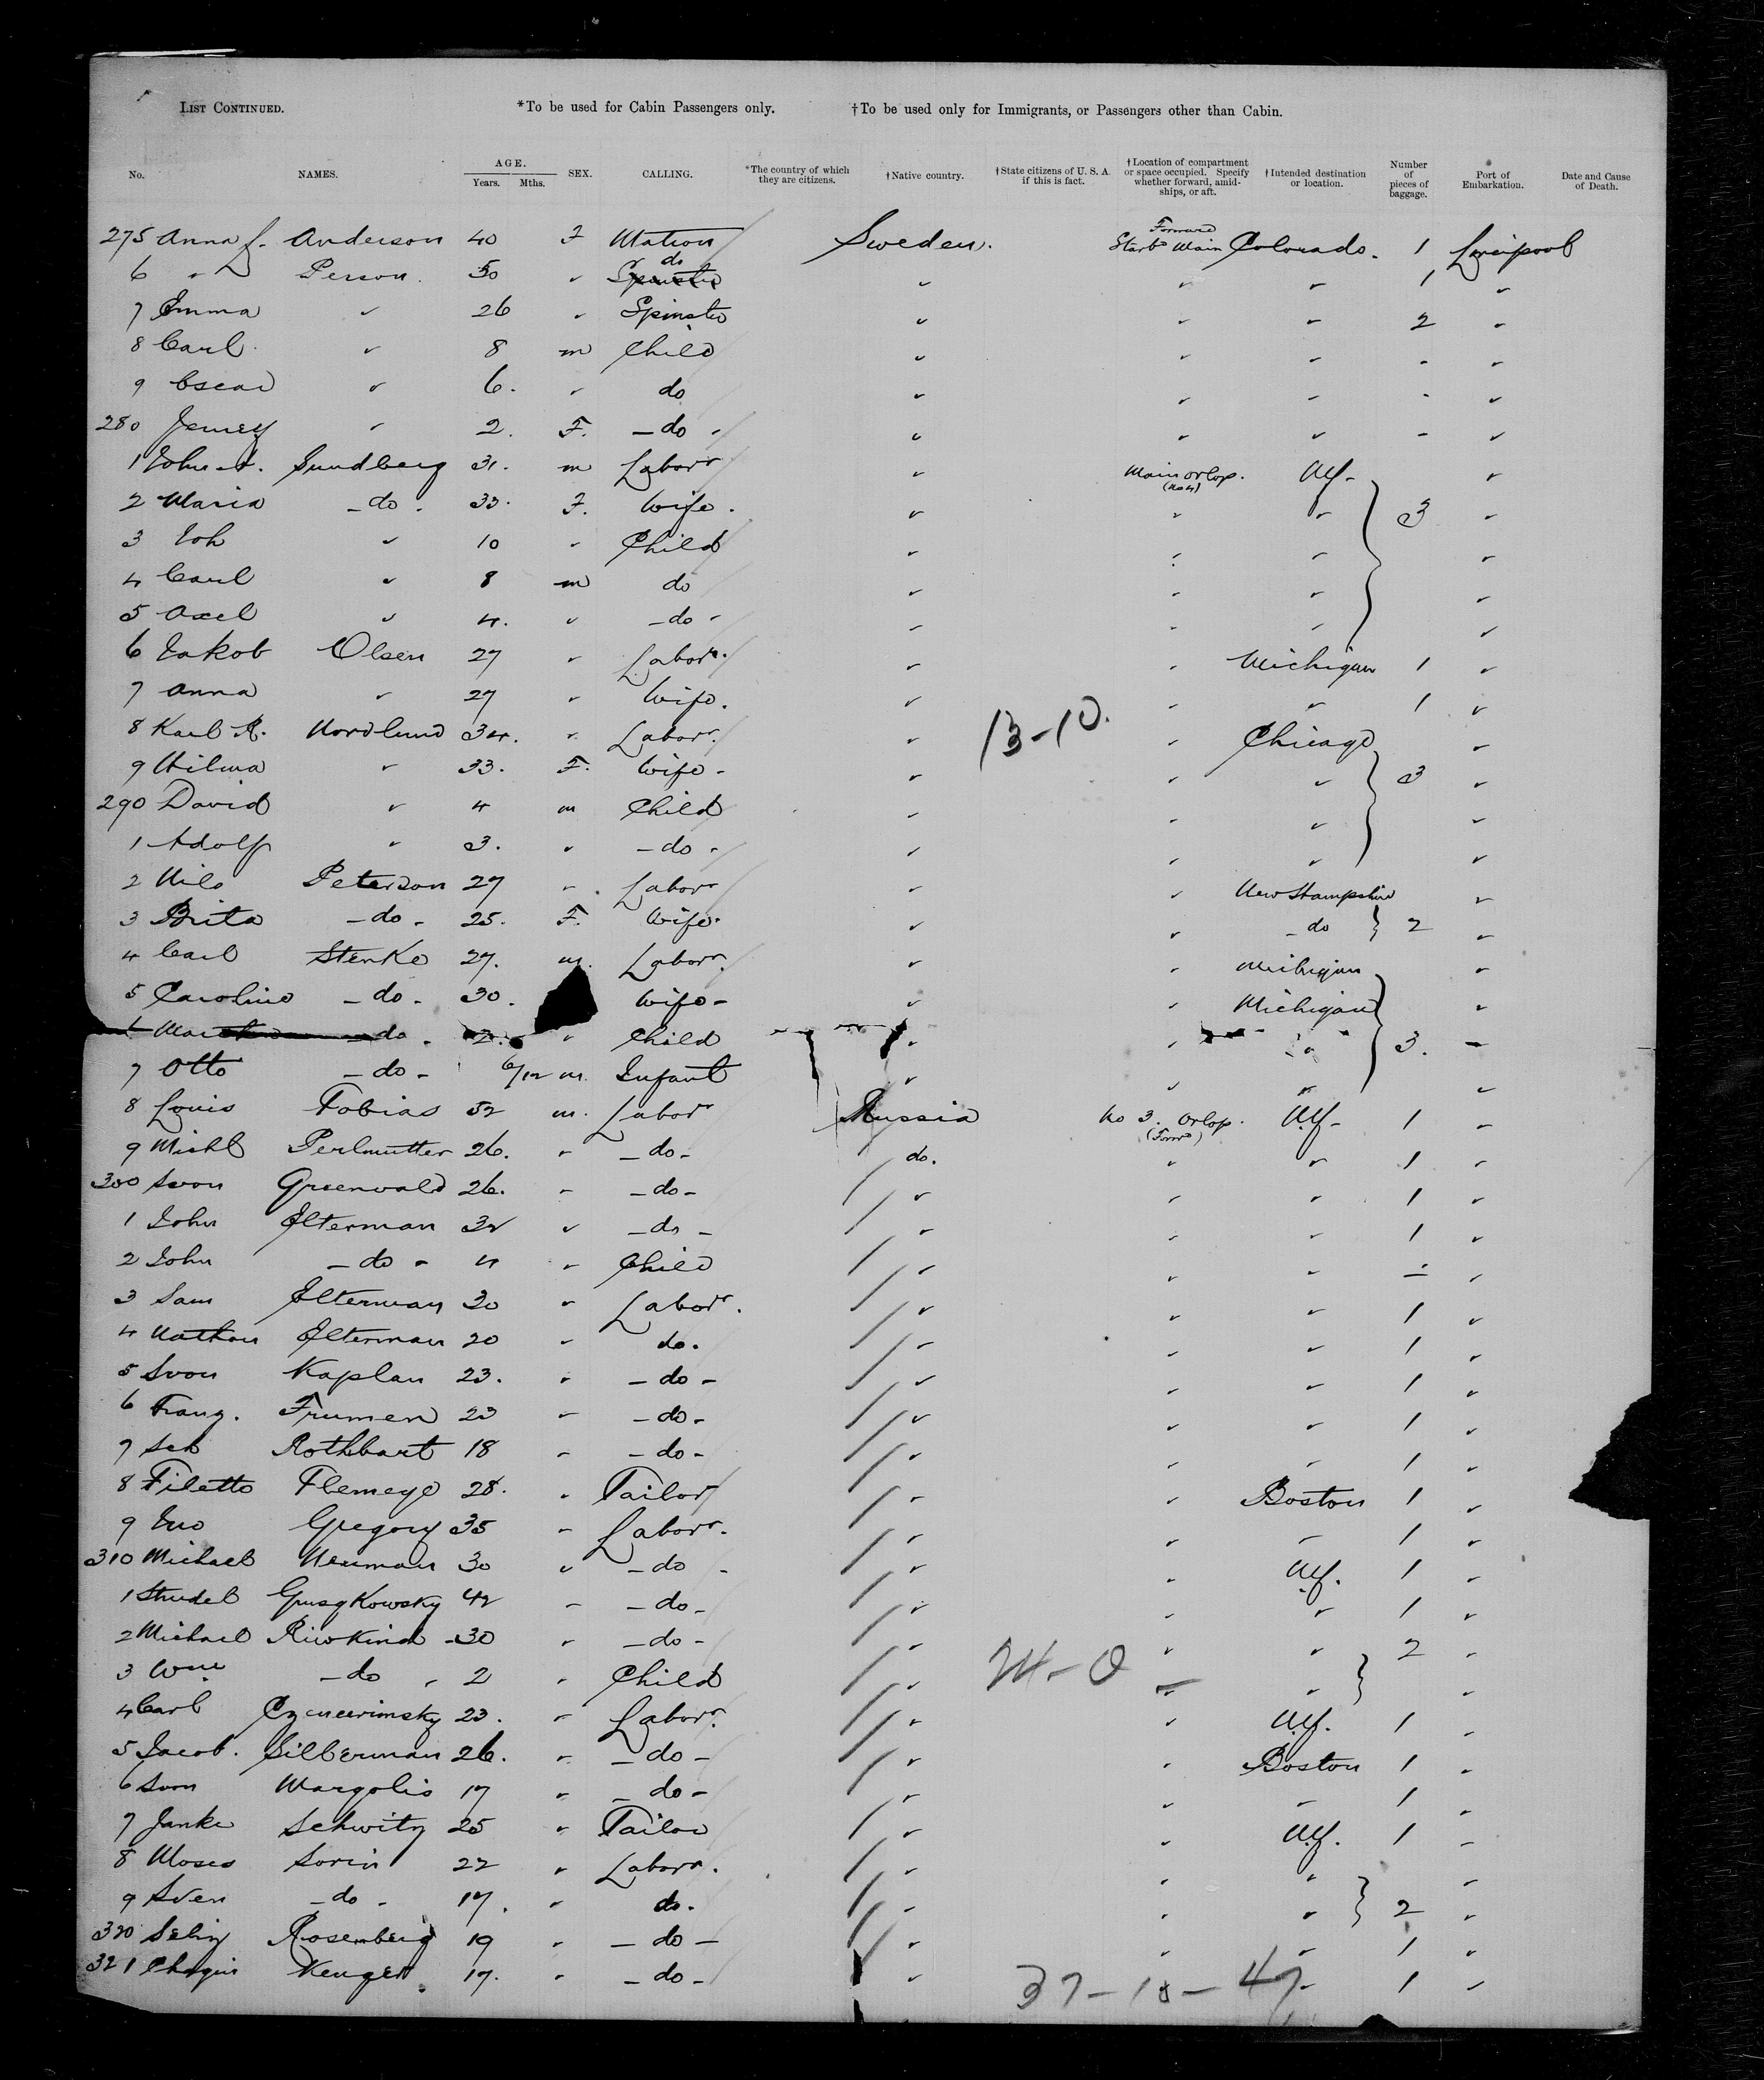 LIST CONTINUED. *To be used for Cabin Passengers only. †To be used only for Immigrants, or Passengers other than Cabin.
No. NAMES. AGE. Years. Mths. SEX. CALLING. *The country of which they are citizens. †Native country. †State citizens of U. S. A. if this is fact. †Location of compartment or space occupied. Specify whether forward, amidships, or aft. †Intended destination or location. Number of pieces of baggage. Port of Embarkation. Date and Cause of Death.
275 Anna Anderson 40 F Matron Sweden. Forward Starb Main Colorado. 1 Liverpool
6 " Person. 30 " do Spinster " " " 1 "
7 Emma " 26 " Spinster " " " 2 "
8 Carl " 8 m Child " " " - "
9 Oscar " 6. " do " " " - "
280 " 2. F. - do - " " " - "
1 John Sundberg 31. m Labor " Main Orlop. NY- "
2 Maria - do - 33. F. Wife. " " " 3 "
3 Joh " 10 " Child " " " "
4 Carl " 8 m do " " " "
5 Axel " 4. " - do - " " " "
6 Jakob Olsen 27 " Labor. " " Michigan 1 "
7 Anna " 27 " Wife. " " " 1 "
8 Karl A. Nordlund 34. " Labor. " 13-10. " Chicago "
9 Hilma " 33. F. Wife - " " " 3 "
290 David " 4 m Child " " " "
1 Adolf " 3. " - do - " " " "
2 Nils Peterson 27 " Labor " " New Hampshire "
3 Brita - do - 25. F. Wife. " " - do 2 "
4 Carl Stenke 27. m. Labor. " " Michigan "
5 Caroline - do - 30. Wife - " " Michigan "
6 - do - 2. " Child " " " 3. -
7 Otto - do - 6/12 m. Infant " " " "
8 Louis Tobias 52 m. Labor Russia No 3. Orlop. (Forw) NY- 1 "
9 Michl Perlmutter 26. " - do - do. " " 1 "
300 Greenwald 26. " - do - " " " 1 "
1 John Elterman 32 " - do - " " " 1 "
2 John - do - 4 " Child " " " - "
3 Sam Elterman 30 " Labor. " " " 1 "
4 Nathan Elterman 20 " do. " " " 1 "
5 Kaplan 23. " - do - " " " 1 "
6 Franz. Frumen 23 " - do - " " " 1 "
7 Rothbart 18 " - do - " " " 1 "
8 Filetto Flemeyo 28. " Tailor " " Boston 1 "
9 Gregory 35 " Labor. " " " 1 "
310 Michael Neuman 30 " - do - " " NY. 1 "
1 42 " - do - " " " 1 "
2 Michael Riwkind 30 " - do - " " " 2 "
3 Wm - do - 2 " Child " 24-0 " " "
4 Carl 23. " Labor. " " NY. 1 "
5 Jacob. Silberman 26. " - do - " " Boston 1 "
6 Margolis 17 " - do - " " " 1 "
7 Janke Schwitz 25 " Tailor " " NY. 1 "
8 Moses Sorin 22 " Labor. " " " "
9 Sven - do - 17. " do. " " " 2 "
320 Rosenberg 19 " - do - " " " 1 "
321 17. " - do - " 37-10-47 1 "